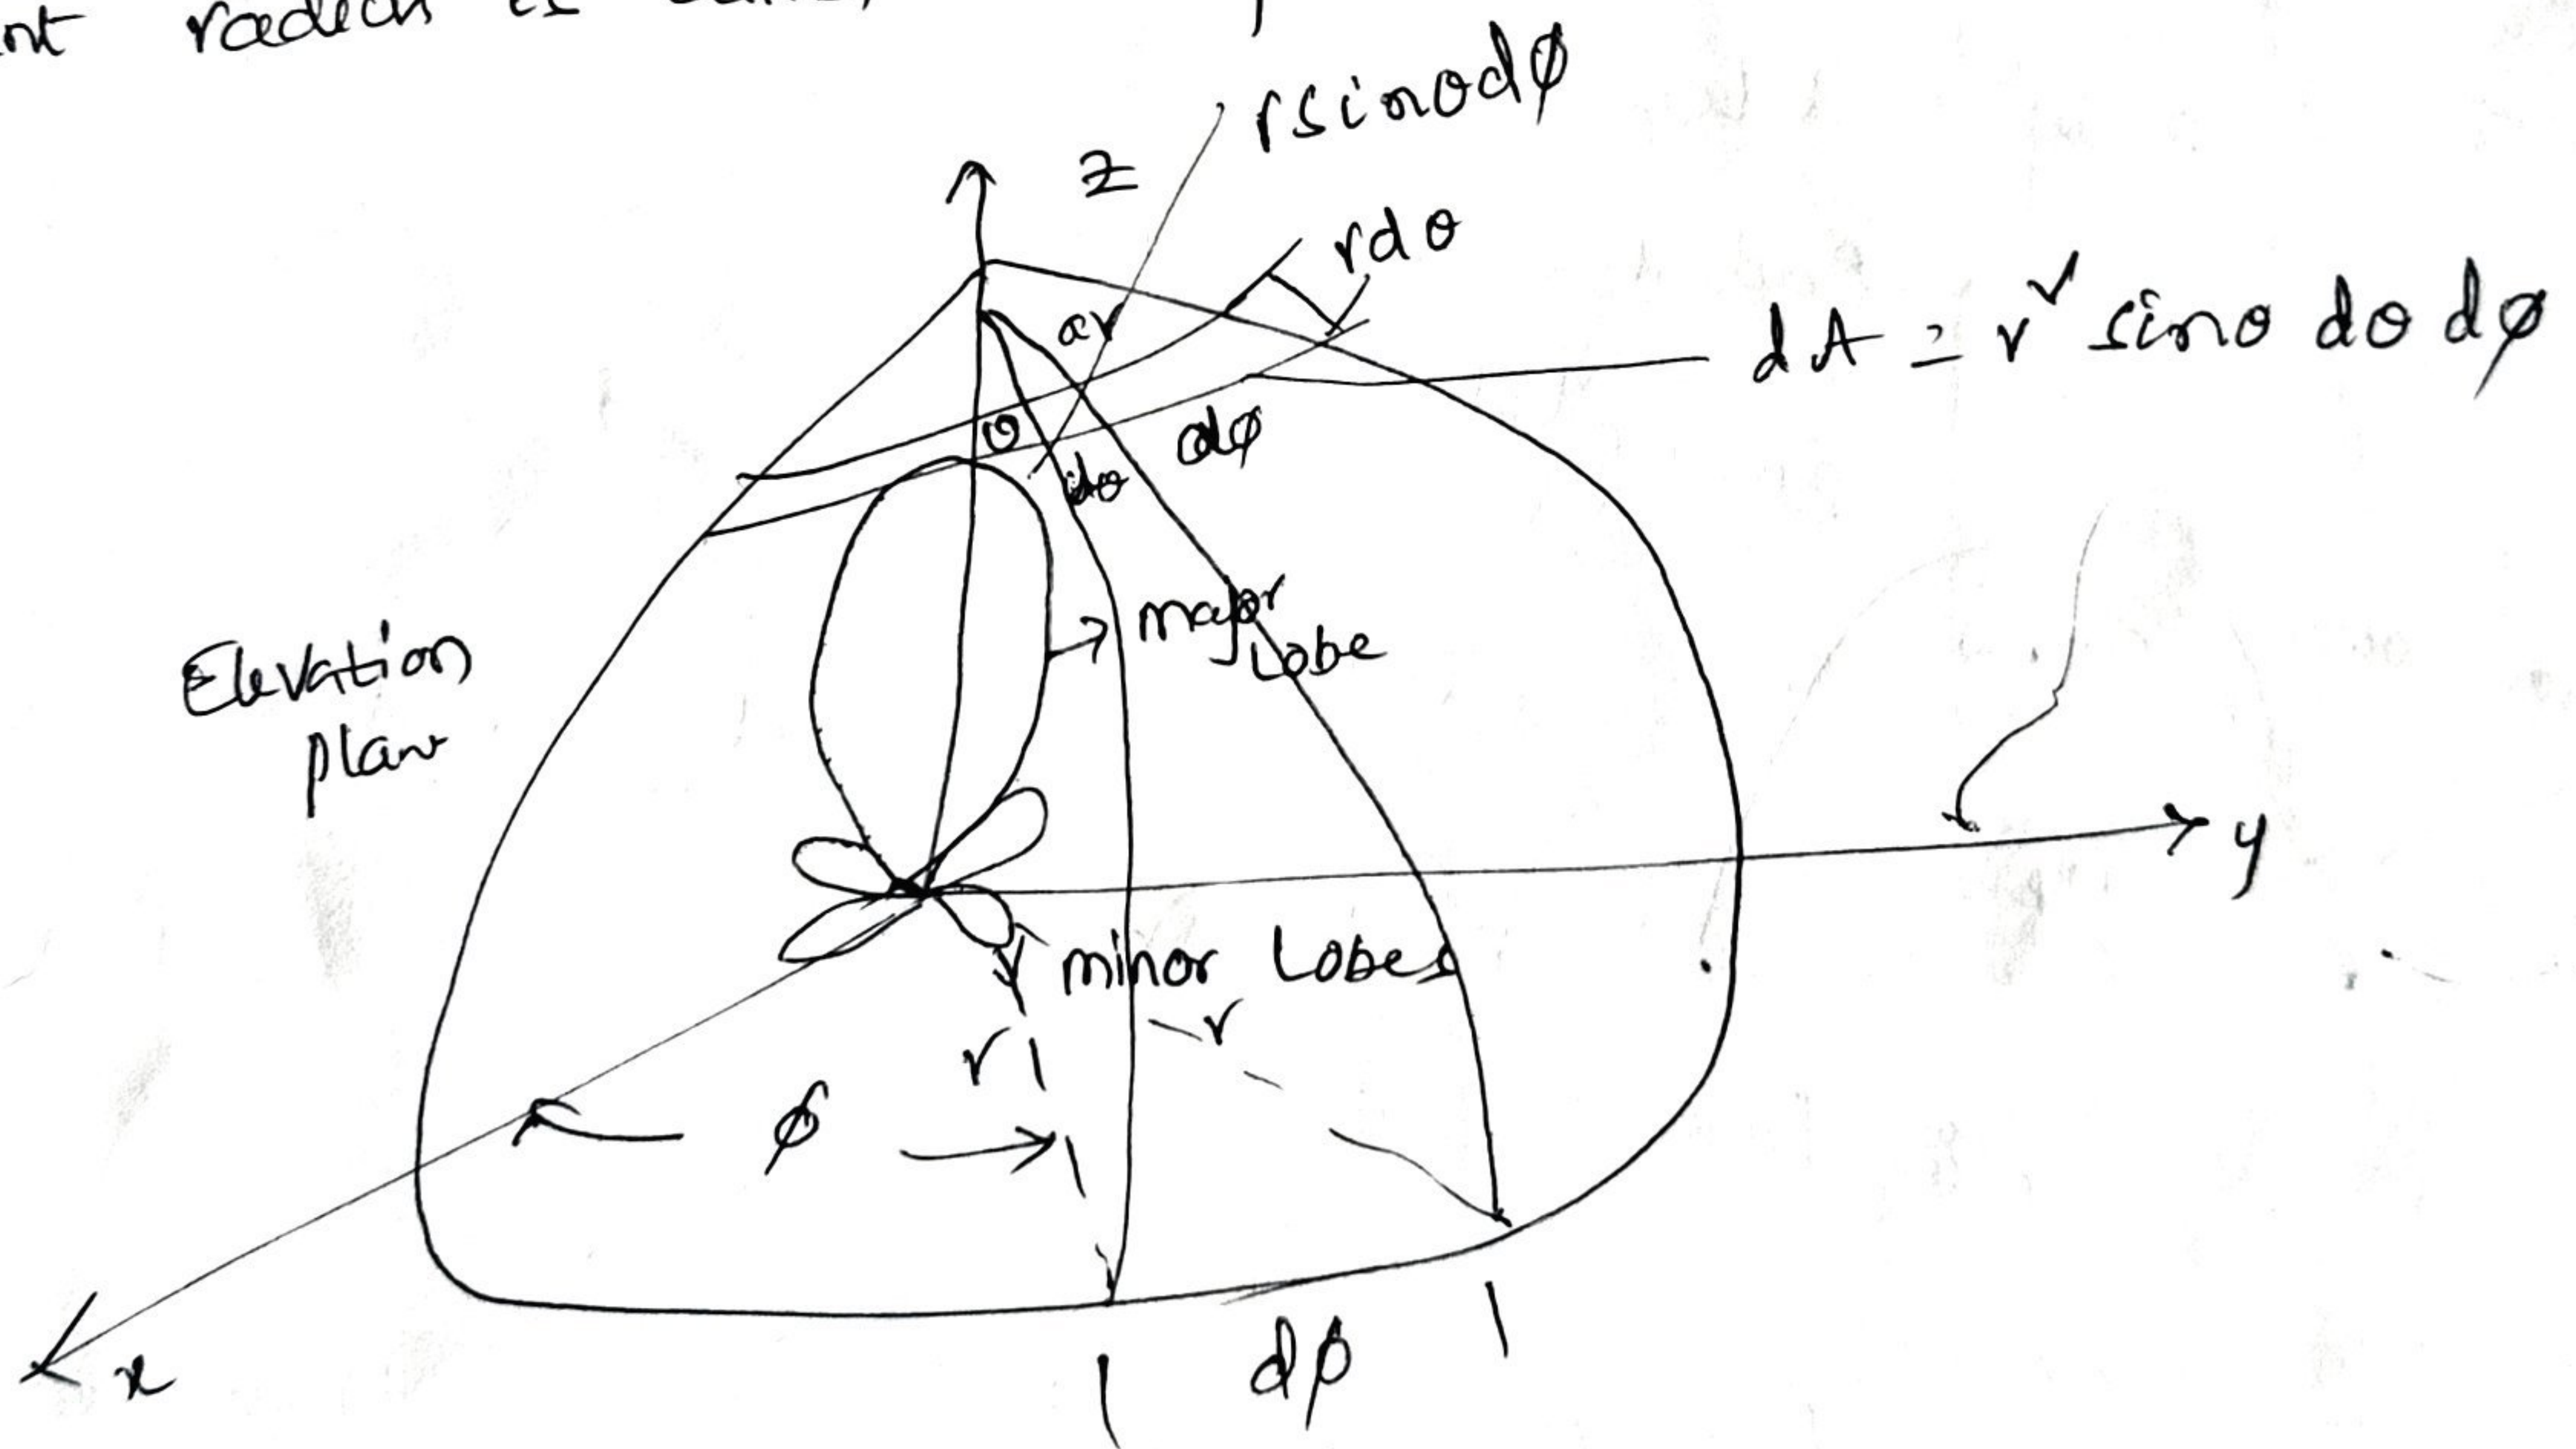 nt radian is
rsinθdϕ
z
rdθ
ar
dA = r² sinθ dθ dϕ
θ
dϕ
dθ
major
Lobe
Elevation
plane
y
minor Lobes
r
r
ϕ
x
dϕ